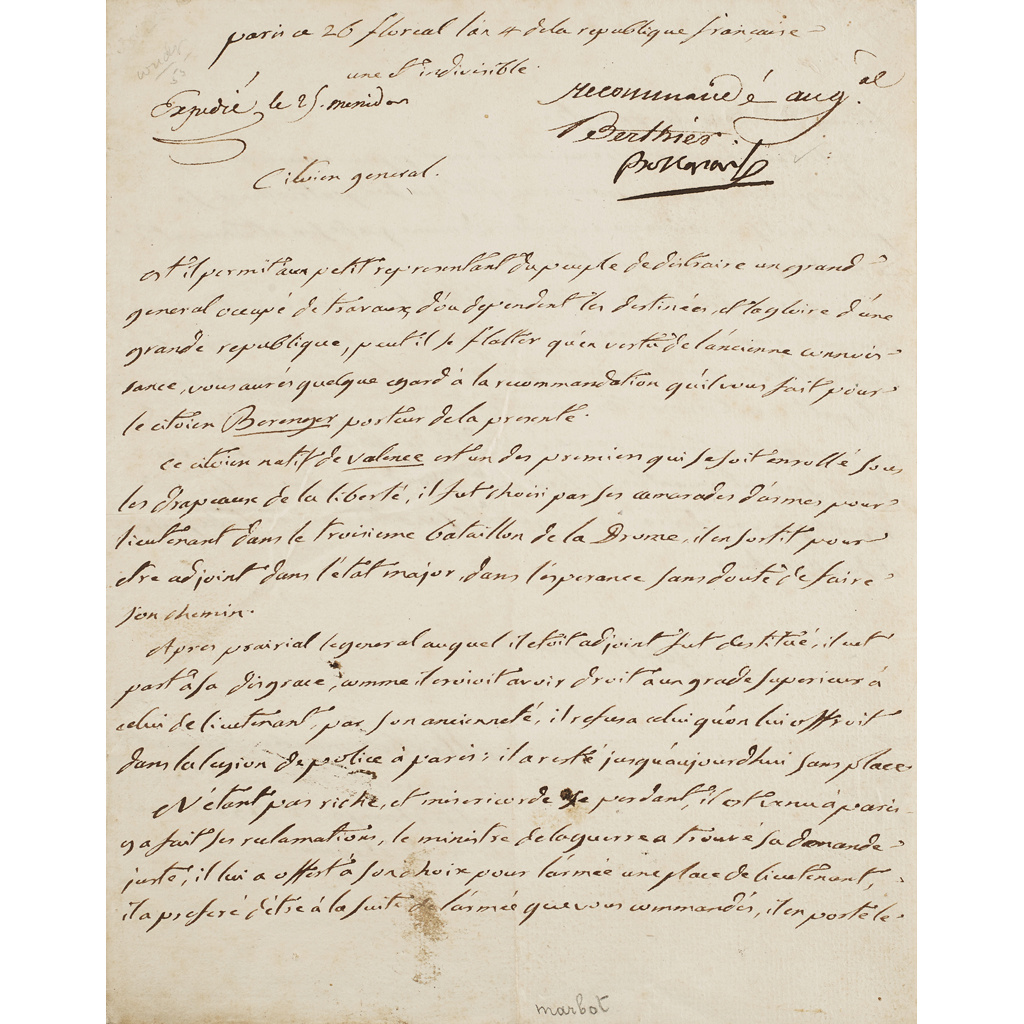 paris ce 26 floreal l'an 4 de la republique française
une et indivisible
Expedié le 25. messidor
recommandé au g.al
Berthier
Citoien general.
est il permit aux petit representant du peuple de distraire un grand
general occupé de travaux, d'ou dependent les destinées, et la gloire d'une
grande republique, peut il se flatter qu'en vertu de l'ancienne connois-
sance, vous aurés quelque egard à la recommandation qu'il vous fait pour
le citoien Berenger porteur de la presente.
ce citoien natif de valence est un des premiers qui se soit enrollé sous
les drapeaux de la liberté, il fut choisi par ses camarades d'armes pour
lieutenant dans le troisieme bataillon de la Drome, il en sortit pour
etre adjoint dans l'état major, dans l'esperance sans doute de faire
son chemin.
Apres prairial le general auquel il etoit adjoint fut destitué, il eut
part à sa disgrace, comme il croioit avoir droit a un grade superieur à
celui de lieutenant, par son ancienneté, il refusa celui qu'on lui offroit
dans la legion de police à paris: il a resté jusqu'aujourdhui sans place
N'étant pas riche, et misericorde se perdant, il est venu à paris
y a fait ses reclamations, le ministre de la guerre a trouvé sa demande
juste, il lui a offert à son choix pour l'armée une place de lieutenant,
il a preferé d'être à la suite de l'armée que vous commandés, il en porte le
marbot